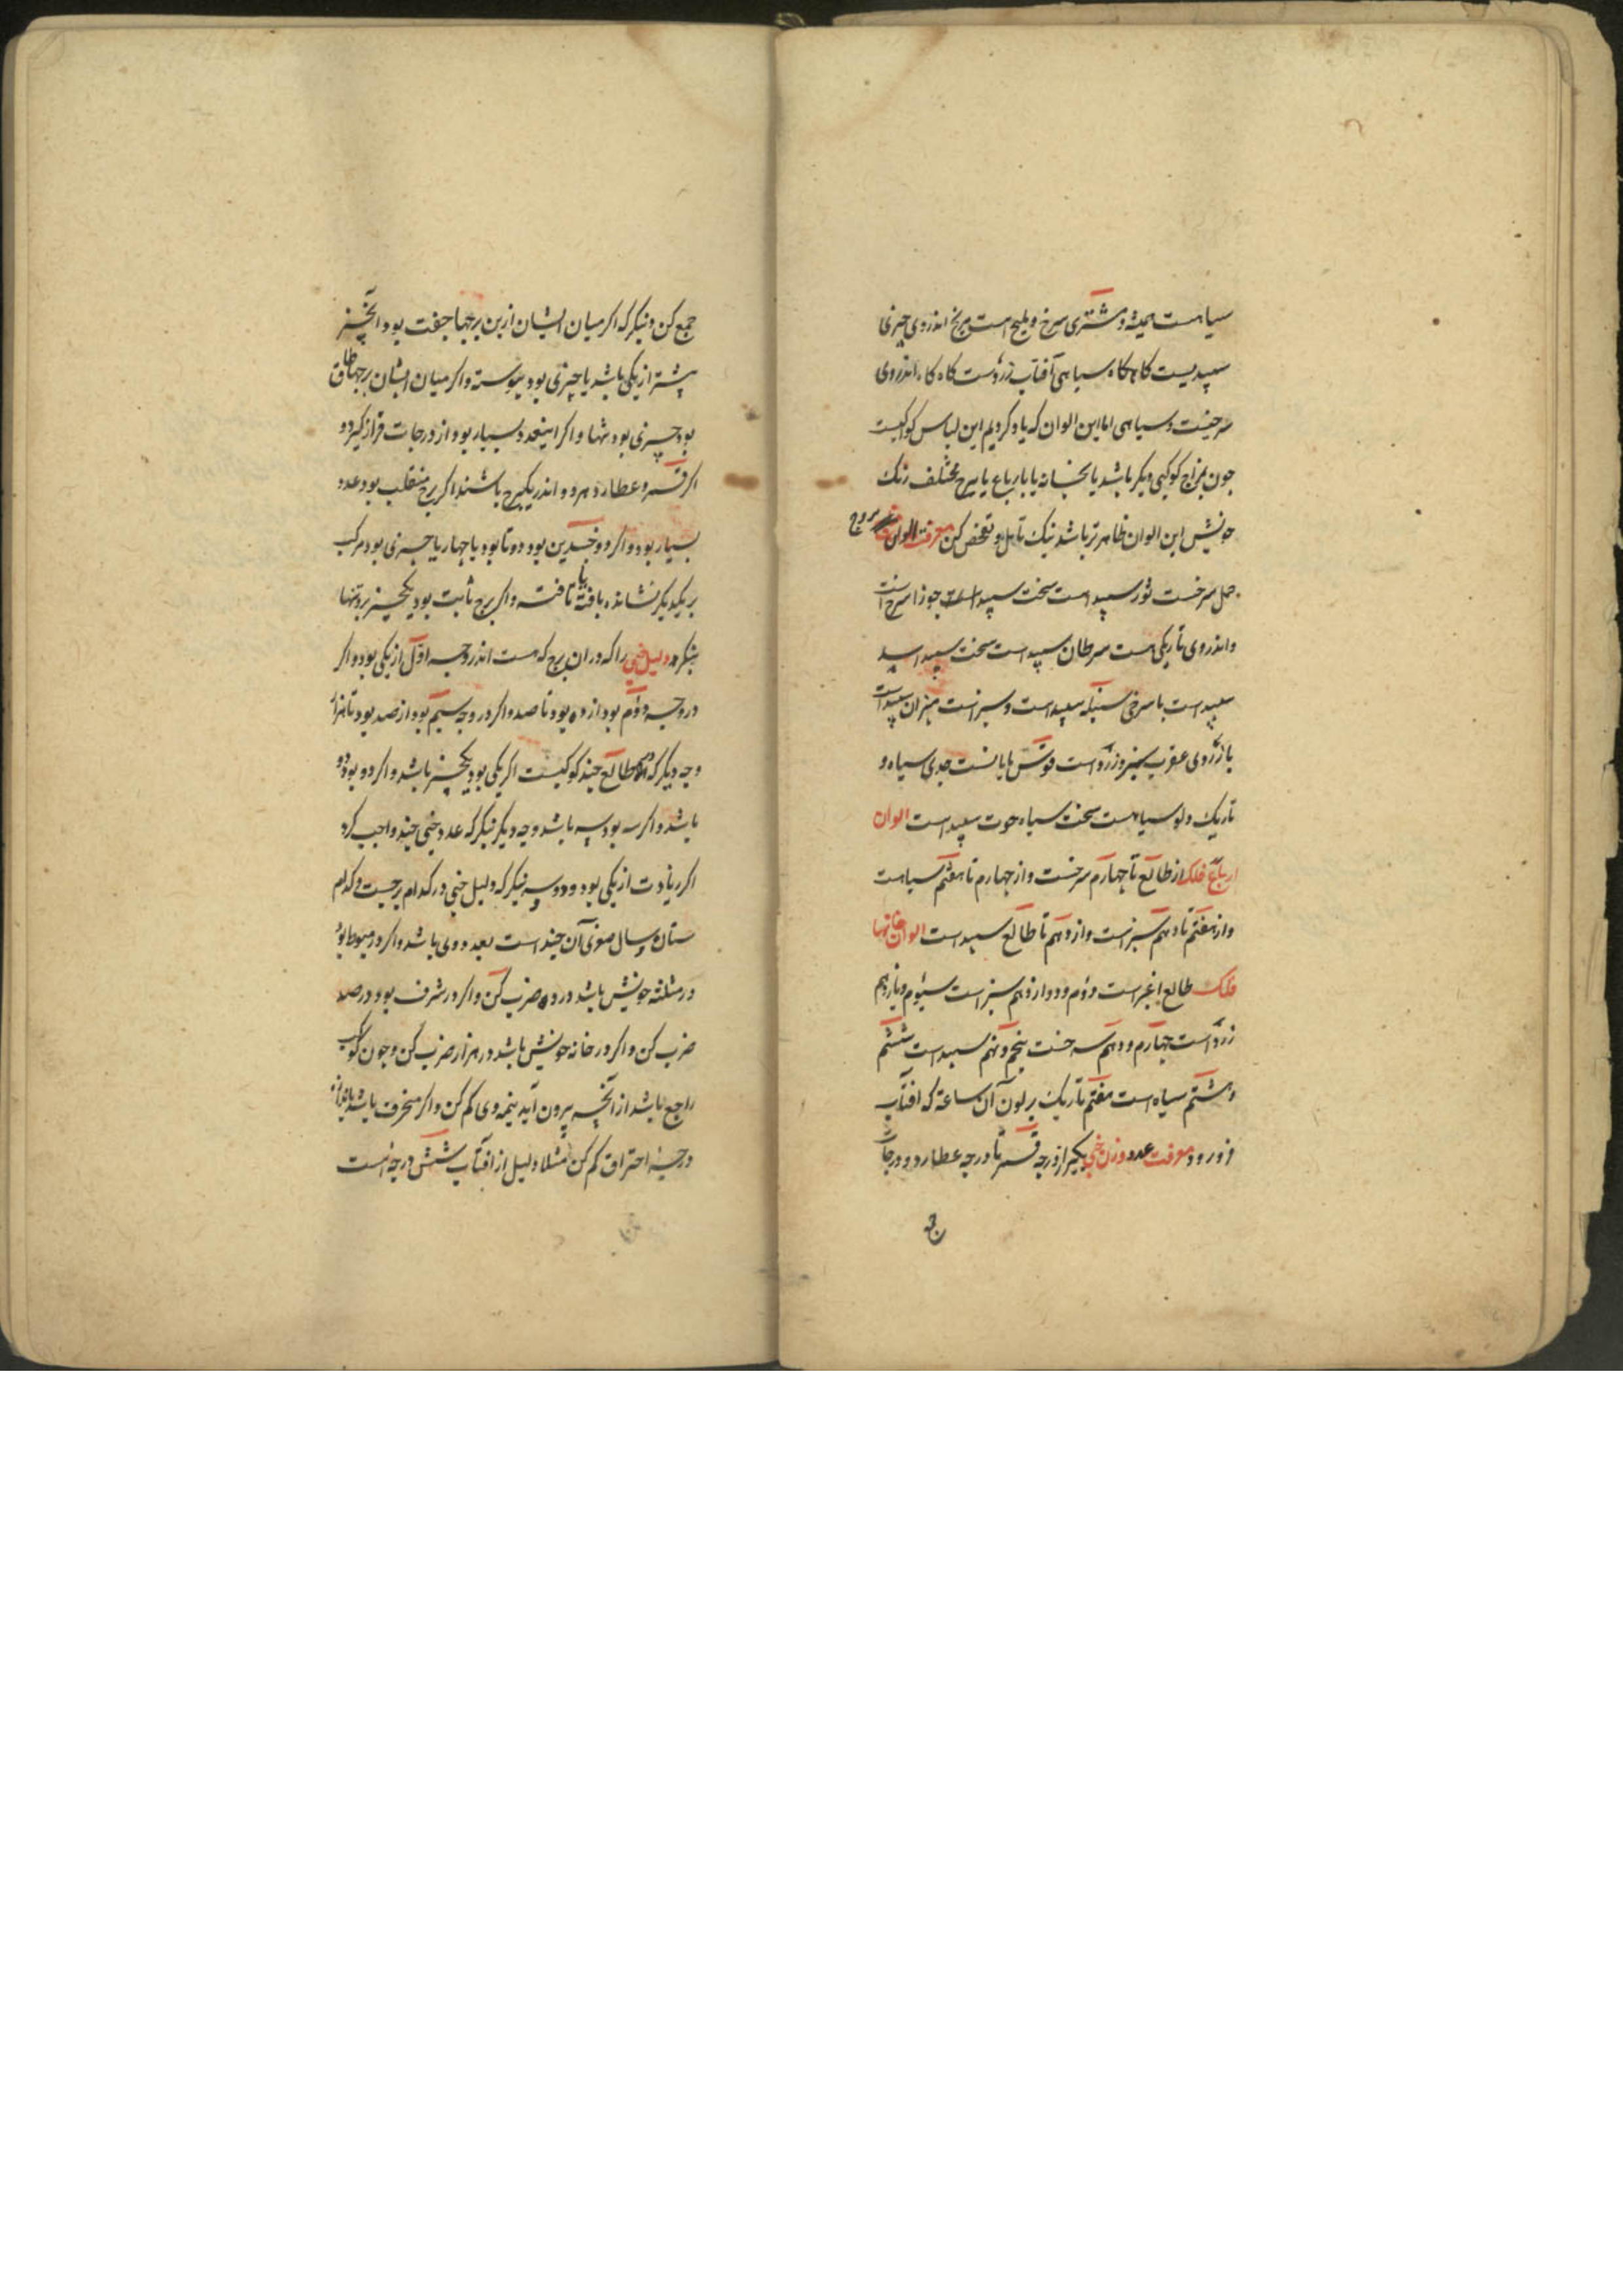 سیاهست همیشه و مشتری سرخ و ملیح است مریخ اندر وی چیزی
سپیدیست کاه کاه سیاهی آفتاب زردست کاه کاه اندر وی
سرخیست و سیاهی اما این الوان که یاد کردیم این لباس کواکبست
چون بمزاج کوکبی دیکر باشد یا بخانه یا بارباع یا ببرج مختلف رنک
خویش این الوان ظاهرتر باشد نیک تأمل و تفحص کن معرفت الوان بروج
حمل سرخست ثور سپید است سخت سپید است جوزا سرخ است
و اندر وی تاریکی هست سرطان سپید است سخت سپید اسد
سپید است با سرخی سنبله سپید است و سبز است میزان سپید است
با زردی عقرب سبز و زرد است قوس تابانست جدی سیاه و
تاریک دلو سیاهست سخت سیاه حوت سپید است الوان
ارباع فلک از طالع تا چهارم سرخست و از چهارم تا هفتم سیاهست
و از هفتم تا دهم سبز است و از دهم تا طالع سپید است الوان خانها
فلک طالع اغبر است دوم و دوازدهم سبز است سیوم و یازدهم
زرد است چهارم و دهم سرخست پنجم و نهم سپید است ششم
و هشتم سیاه است هفتم تاریک بر لون آن ساعة که افتاب
فرو رود معرفت عدد وزن خبی بکیر از درجه قمر تا درجه عطارد و درجات
جمع کن و بنکر که اکر میان ایشان ازین برجها جفت بود آن چیز
بیشتر از یکی باشد یا چیزی بود پیوسته و اکر میان ایشان برجها طاق
بود چیزی بود تنها و اکر این عدد بسیار بود از درجات فراز کیرد و
اکر قمر و عطارد هر دو اندر یک برج باشند اکر برج منقلب بود عدد
بسیار بود و اکر ذو جسدین بود دو تا بود یا چهار یا چیزی بود مرکب
بر یکدیکر نشانده بافته یا تافته و اکر برج ثابت بود یک چیز بود تنها
بنکر دلیل خبی را که در آن برج که هست اندر وجه اول از یکی بود و اکر
در وجه دوم بود از ده بود تا صد و اکر در وجه سیم بود از صد بود تا هزار
وجه دیکر که در طالع چند کوکبست اکر یکی بود یک چیز باشد و اکر دو بود دو
باشد و اکر سه بود سه باشد وجه دیکر بنکر که عدد خبی چند واجب کرد
اکر زیادت از یکی بود و دو و سه بنکر که دلیل خبی در کدام برجست و کدام
ستاره و سال صغری آن چند است بعدد وی باشد و اکر در هبوط بود
در مثلثه خویش باشد در ده ضرب کن و اکر در شرف بود در صد
ضرب کن و اکر در خانه خویش باشد در هزار ضرب کن و چون کوکب
راجع باشد از آنچه بیرون آید نیمه وی کم کن و اکر محترق باشد باندازه
درجه احتراق کم کن مثلا دلیل از افتاب شش درجه است